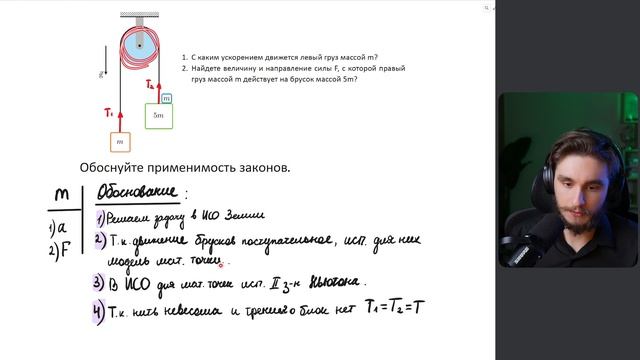 1. С каким ускорением движется левый груз массой m?
2. Найдете величину и направление силы F, с которой правый
груз массой m действует на брусок массой 5m?
T₂
m
T₁
5m
m
Обоснуйте применимость законов.
m
Обоснование :
1) a
1) Решаем задачу в ИСО Земли
2) F
2) Т.к. движение брусков поступательное, исп. для них
модель мат. точки.
3) В ИСО для мат. точки исп. II з-н Ньютона.
4) Т.к. нить невесома и трения о блок нет T₁=T₂=T